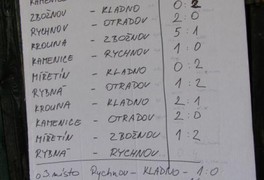 KAMENICE
ZBOŽNOV - KLADNO 0:2
RYCHNOV - OTRADOV 2:0
KROUNA - ZBOŽNOV 5:1
KAMENICE - RYCHNOV 1:0
MIŘETÍN - KLADNO 0:1
RYBNÁ - OTRADOV 1:2
KROUNA - KLADNO 2:1
KAMENICE - OTRADOV 2:0
MIŘETÍN - ZBOŽNOV 1:2
RYBNÁ - RYCHNOV
o 3. místo Rychnov - KLADNO - 1:0